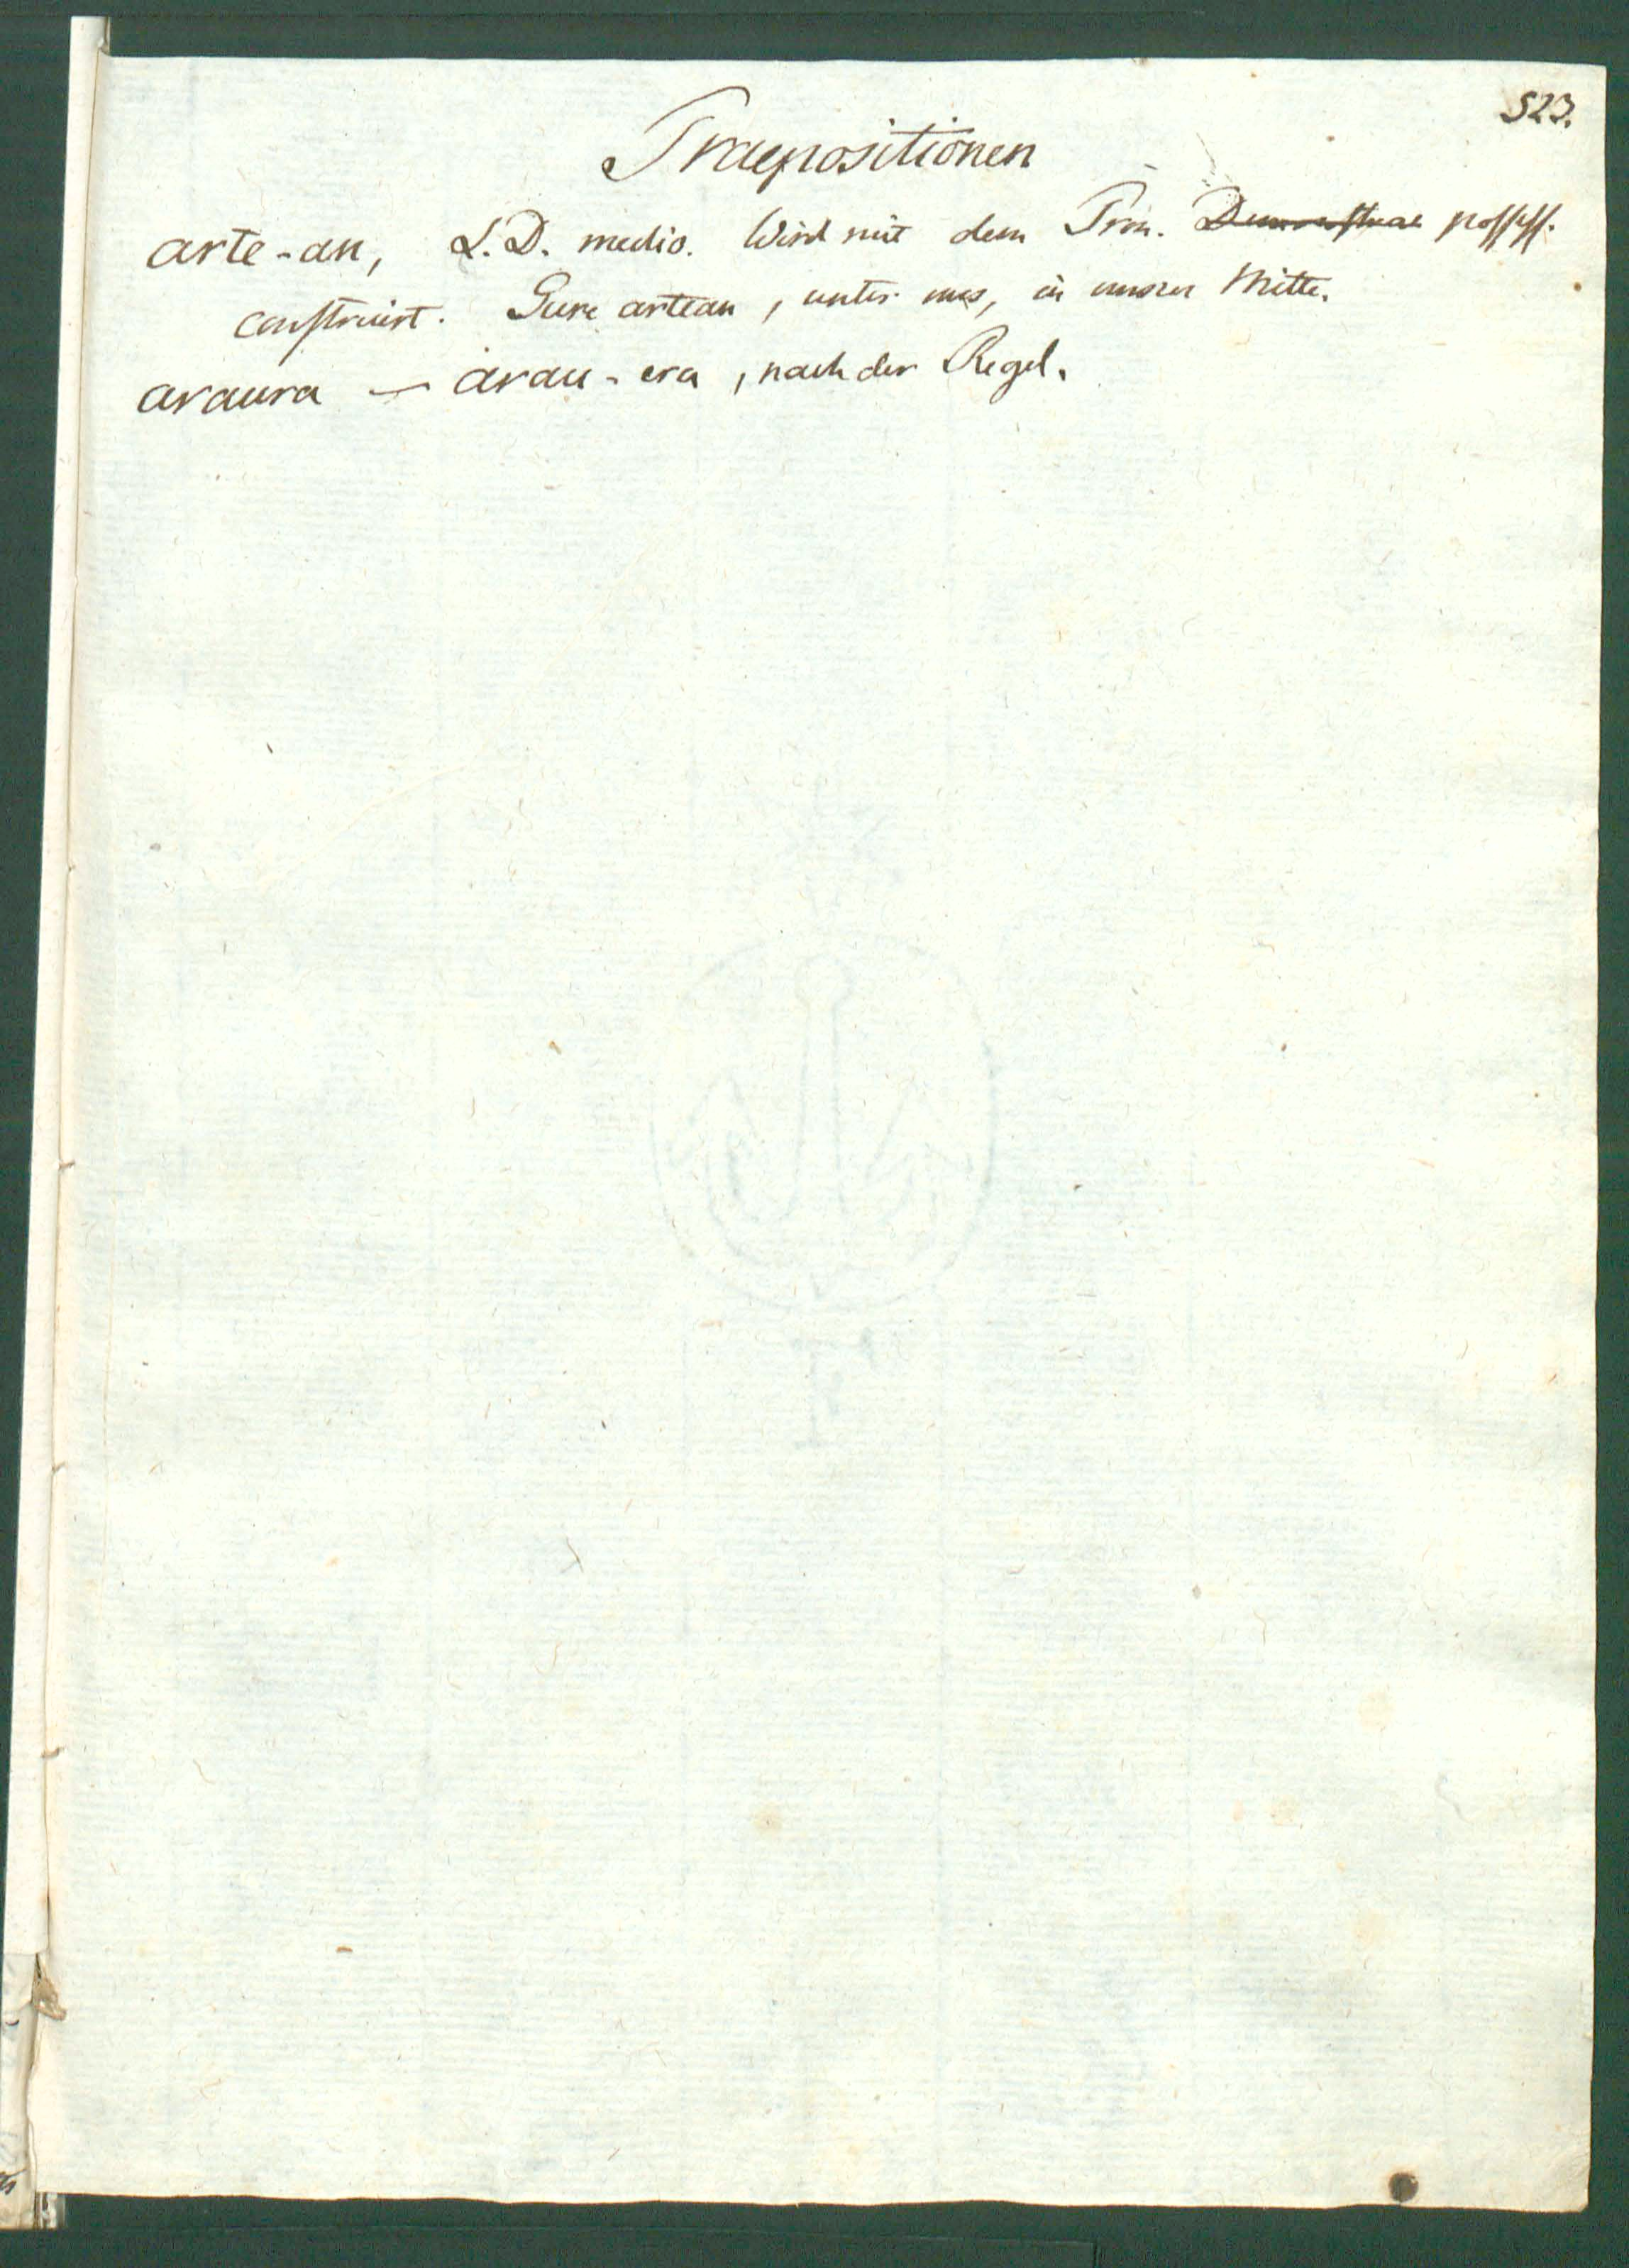 523.
Praepositionen
arte-an, L.D. medio. Wird mit dem Pron. possess.
construirt. Gure artean, unter uns, in unsrer Mitte.
araura — arau-era, nach der Regel.